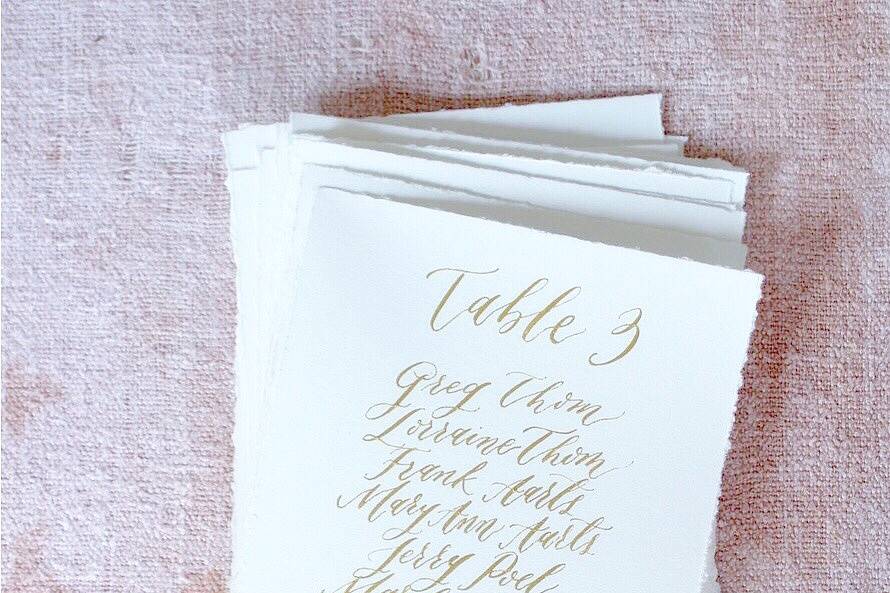 Table 3
Greg Thom
Lorraine Thom
Frank Aarts
Mary Ann Aarts
Jerry Poel